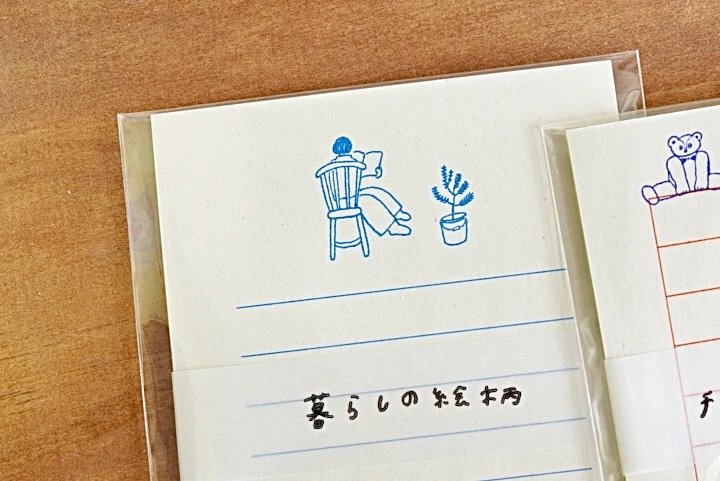 暮らしの絵柄
チ